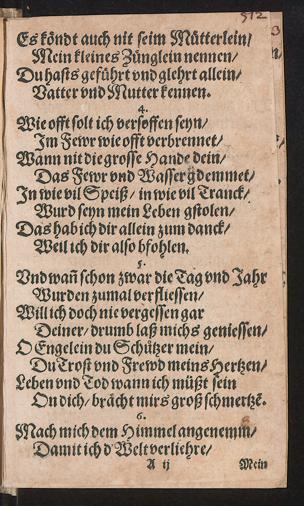 512
Es köndt auch nit seim Mütterlein/
Mein kleines Zünglein nennen/
Du hasts geführt vnd glehrt allein/
Vatter vnd Mutter kennen.
4.
Wie offt solt ich versoffen seyn/
Jm Fewr wie offt verbrennet/
Wann nit die grosse Hande dein/
Das Fewr vnd Wasser gdemmet/
Jn wie vil Speiß/ in wie vil Tranck/
Wurd seyn mein Leben gstolen/
Das hab ich dir allein zum danck/
Weil ich dir also bfohlen.
5.
Vnd wañ schon zwar die Tag vnd Jahr
Wurden zumal verfliessen/
Will ich doch nie vergessen gar
Deiner/ drumb laß michs geniessen/
O Engelein du Schützer mein/
Du Trost vnd Frewd meins Hertzen/
Leben vnd Tod wann ich müßt sein
On dich/ brächt mirs groß schmertzẽ.
6.
Mach mich dem Himmel angenemm/
Damit ich d' Welt verliehre/
A ij Mein